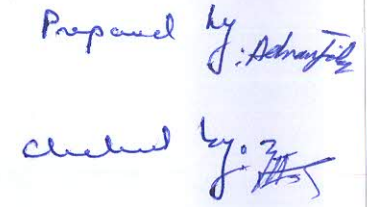 Prepared by:
Checked by: